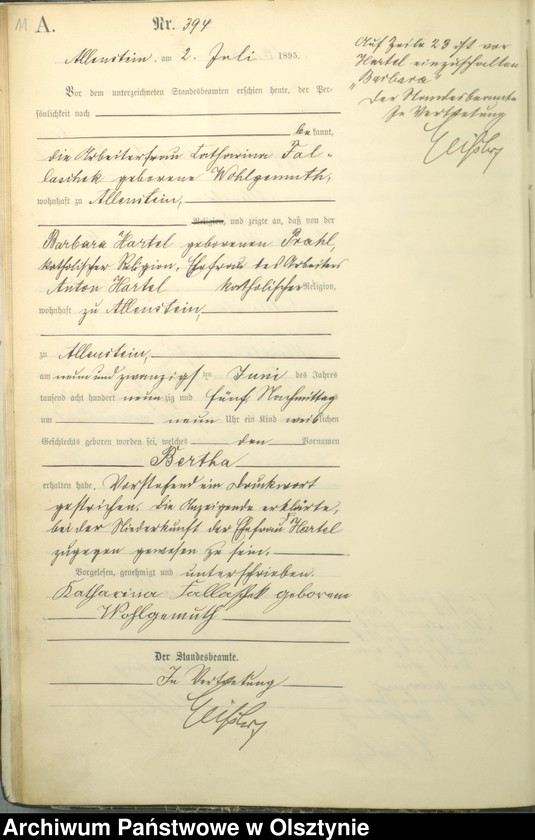 11 A. Nr. 394
Allenstein, am 2. Juli 1895.
Vor dem unterzeichneten Standesbeamten erschien heute, der Per-
sönlichkeit nach
bekannt,
die Arbeiterfrau Catharina Fal-
laschek geborene Wohlgemuth,
wohnhaft zu Allenstein,
Religion, und zeigte an, daß von der
Barbara Hartel geborenen Prahl,
katholischer Religion, Ehefrau des Arbeiters
Anton Hartel katholischer Religion,
wohnhaft zu Allenstein,
zu Allenstein,
am neun und zwanzigsten Juni des Jahres
tausend acht hundert neunzig und fünf Nachmittags
um neun Uhr ein Kind weiblichen
Geschlechts geboren worden sei, welches den Vornamen
Bertha
erhalten habe. Vorstehend ein Druckwort
gestrichen. Die Anzeigende erklärte,
bei der Niederkunft der Ehefrau Hartel
zugegen gewesen zu sein.
Vorgelesen, genehmigt und unterschrieben.
Katharina Fallaschek geborene
Wohlgemuth
Der Standesbeamte.
In Vertretung
Auf Zeile 23 ist vor
Hartel einzuschalten
„Barbara“
Der Standesbeamte
In Vertretung
Archiwum Państwowe w Olsztynie